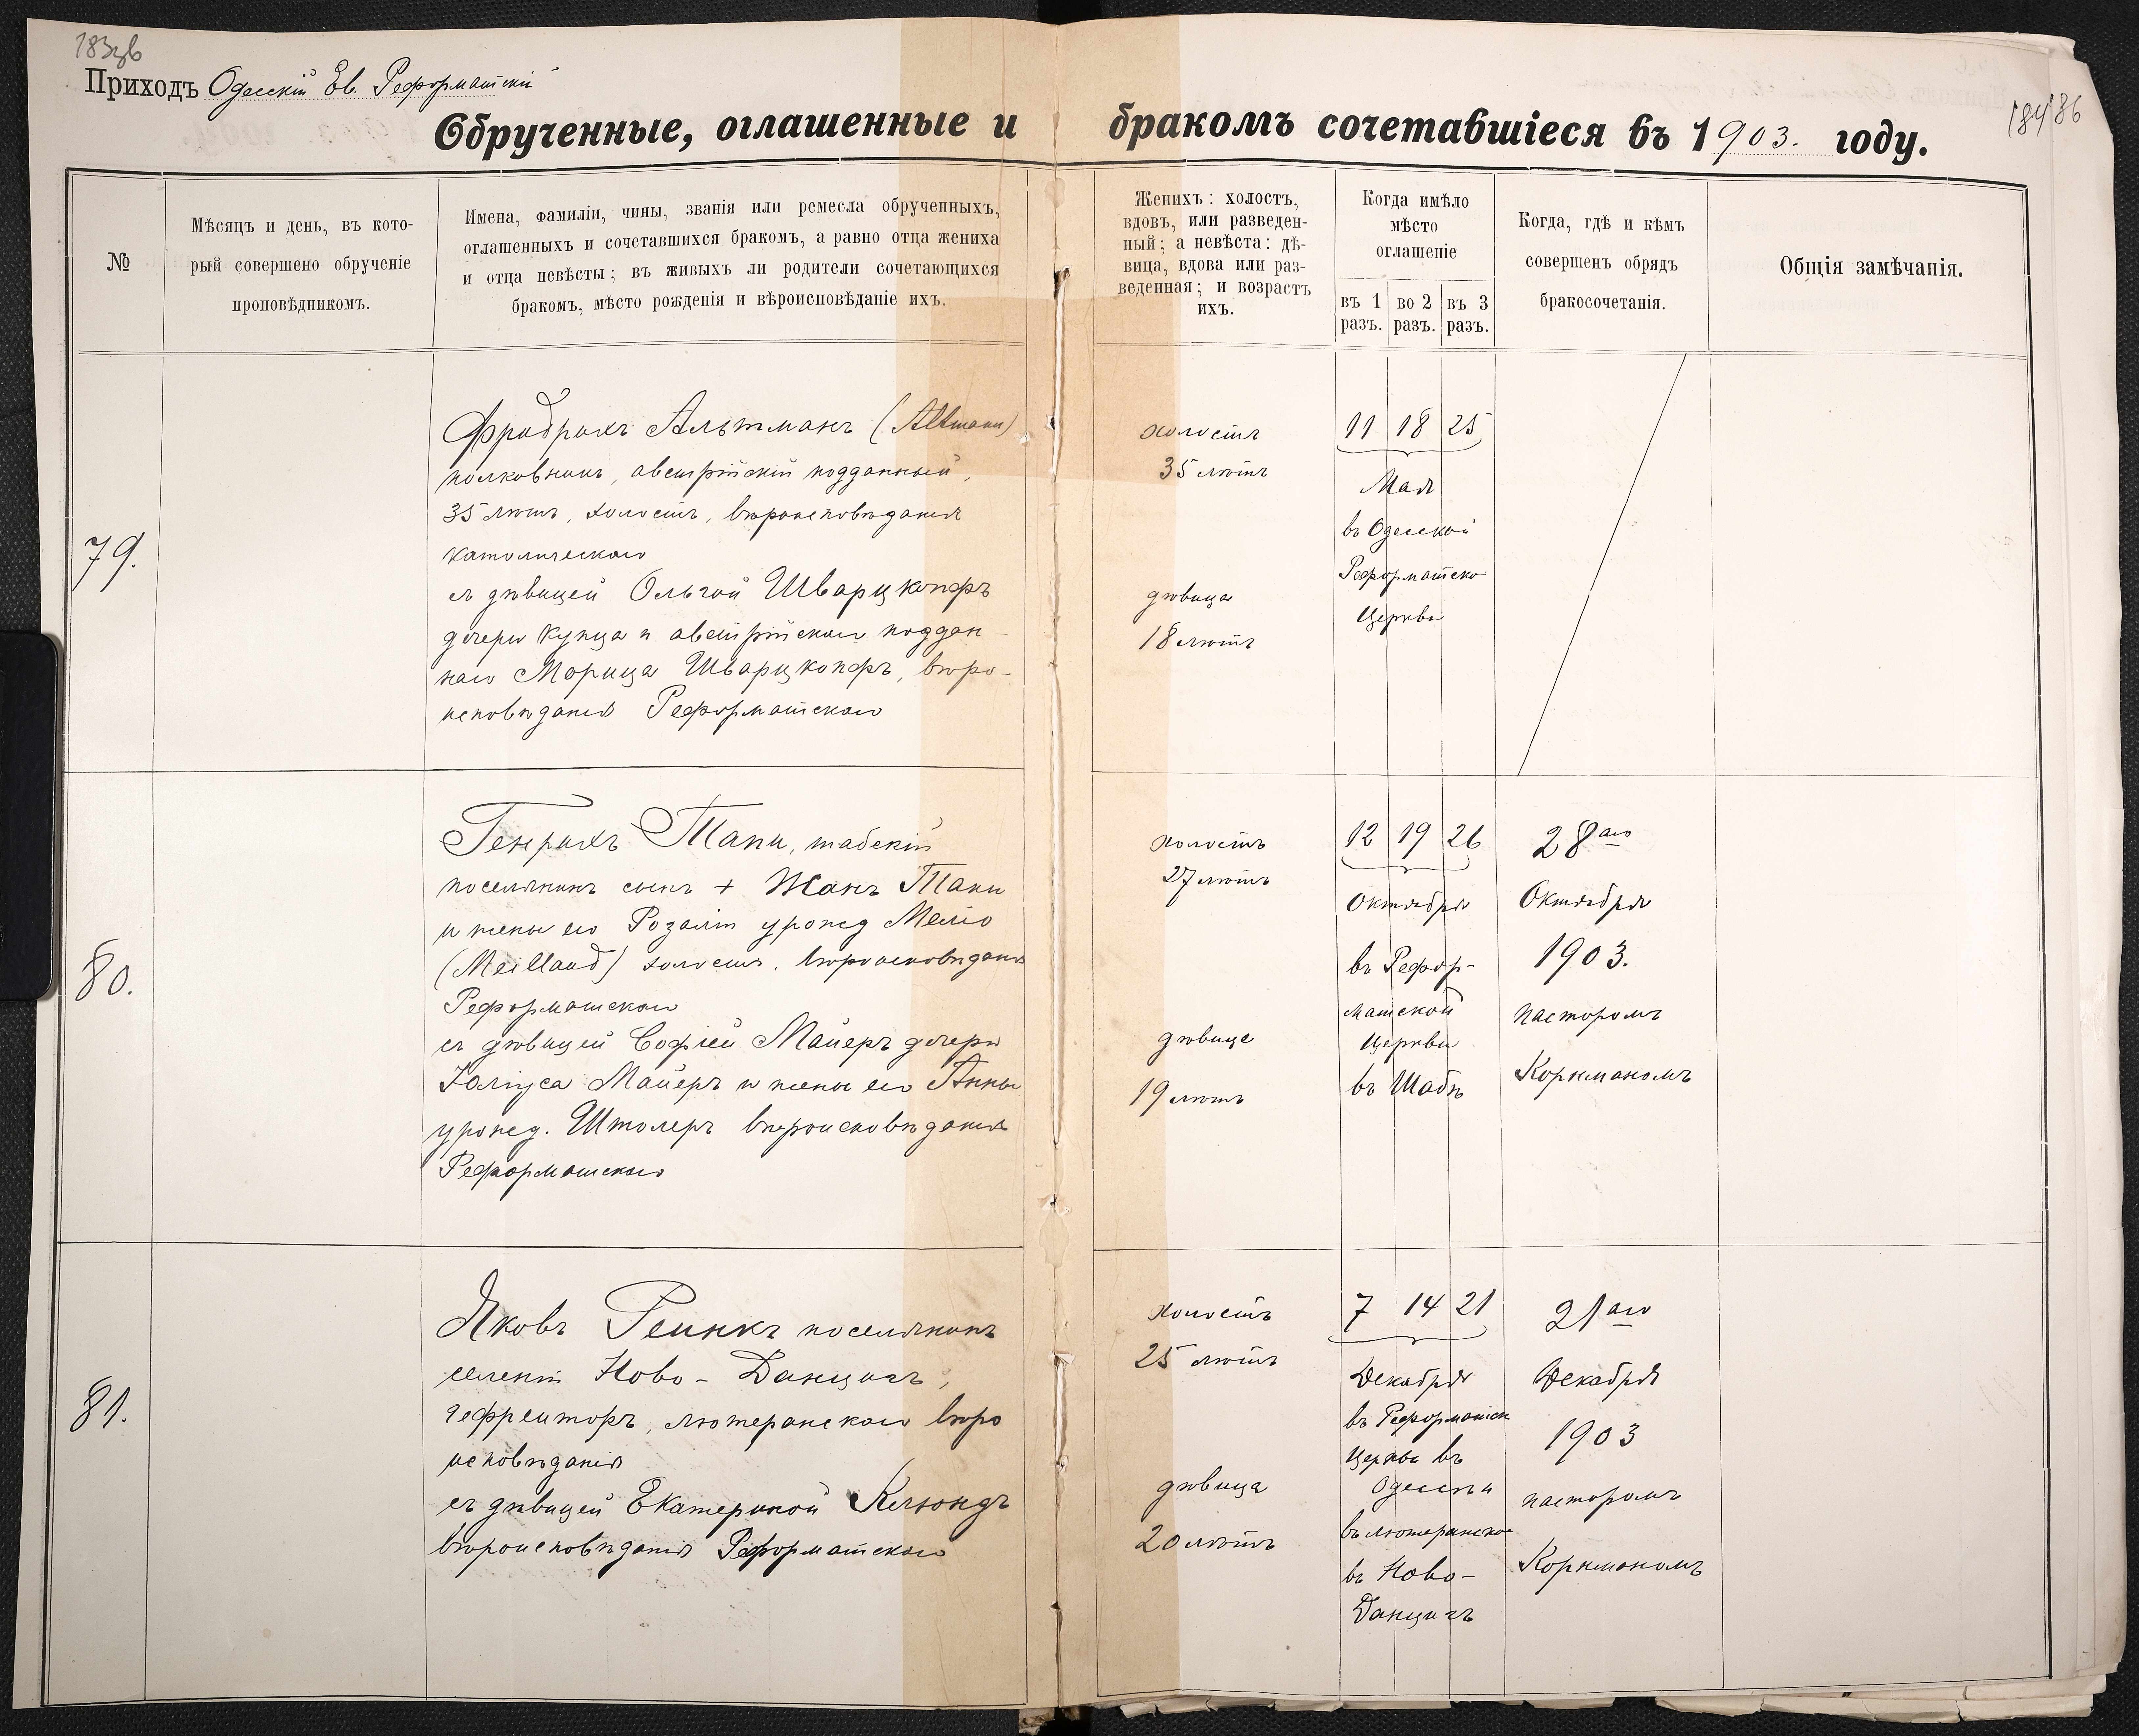 183об
Приходъ Одесскій Ев. Реформатскій
184 186
Обрученные, оглашенные и бракомъ сочетавшіеся въ 1903. году.
№
Мѣсяцъ и день, въ кото-
рый совершено обрученіе
проповѣдникомъ.
Имена, фамиліи, чины, званія или ремесла обрученныхъ,
оглашенныхъ и сочетавшихся бракомъ, а равно отца жениха
и отца невѣсты; въ живыхъ ли родители сочетающихся
бракомъ, мѣсто рожденія и вѣроисповѣданіе ихъ.
Женихъ: холостъ,
вдовъ, или разведен-
ный; а невѣста: дѣ-
вица, вдова или раз-
веденная; и возрастъ
ихъ.
Когда имѣло
мѣсто
оглашеніе
въ 1 разъ.
во 2 разъ.
въ 3 разъ.
Когда, гдѣ и кѣмъ
совершенъ обрядъ
бракосочетанія.
Общія замѣчанія.
79.
Фридрихъ Альтманъ (Altmann)
полковникъ, австрійскій подданный,
35 лѣтъ, холостъ, вѣроисповѣданія
католическаго
съ дѣвицей Ольгой Шварцкопфъ
дочери купца и австрійскаго поддан
наго Морица Шварцкопфъ, вѣро-
исповѣданія Реформатскаго
холостъ
35 лѣтъ
дѣвица
18 лѣтъ
11 18 25
Мая
въ Одесской
Реформатско
Церкви
80.
Генрихъ Тапи, шабскій
поселянинъ сынъ + Жанъ Тапи
и жены его Розаліи урожд Меліо
(Meilland) холостъ, вѣроисповѣданія
Реформатскаго
съ дѣвицей Софіей Майеръ дочери
Юліуса Майеръ и жены его Анны
урожд. Штолеръ вѣроисповѣданія
Реформатскаго
холостъ
27 лѣтъ
дѣвица
19 лѣтъ
12 19 26
Октября
въ Рефор-
матской
Церкви
въ Шабѣ
28аго
Октября
1903.
пасторомъ
Коркманомъ
81.
Яковъ Реинкъ поселянинъ
селенія Ново-Данцигъ,
ефрейторъ, лютеранскаго вѣро
исповѣданія
съ дѣвицей Екатериной Клюндъ
вѣроисповѣданія Реформатскаго
холостъ
25 лѣтъ
дѣвица
20 лѣтъ
7 14 21
Декабря
въ Реформатск
Церкви въ
Одессѣ и
въ лютеранской
въ Ново-
Данцигъ
21аго
Декабря
1903
пасторомъ
Коркманомъ